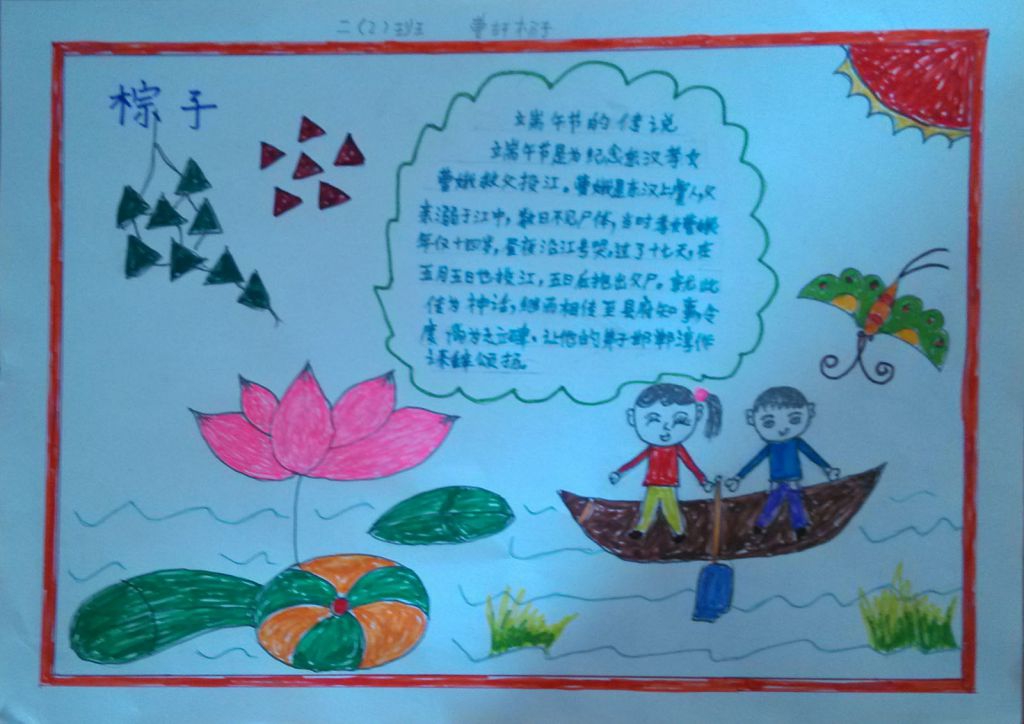 二（2）班 曹
粽子
端午节的传说
端午节是为纪念东汉孝女
曹娥救父投江。曹娥是东汉上虞人,父
亲溺于江中,数日不见尸体,当时孝女曹娥
年仅十四岁,昼夜沿江号哭,过了十七天,在
五月五日也投江,五日后抱出父尸。就此
传为神话,继而相传至县府知事,令
度尚为之立碑,让他的弟子邯郸淳作
诔辞颂扬